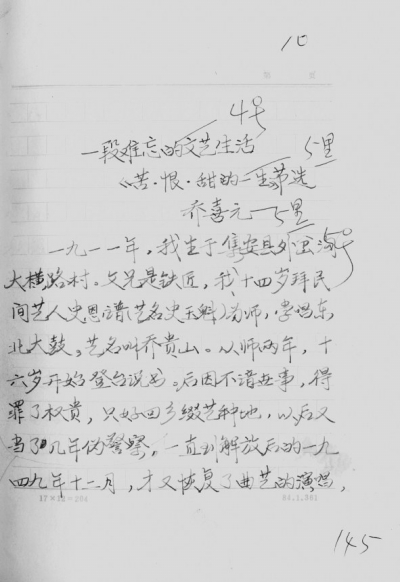 4号
一段难忘的文艺生活
5里
《苦·恨·甜的一生》节选
乔喜元 5里
一九一一年，我生于集安县外岔沟
5号
大横路村。父兄是铁匠，我十四岁拜民
间艺人史恩谱（艺名史玉魁）为师，学唱东
北大鼓。艺名叫乔贵山。从师两年，十
六岁开始登台说书。后因不谙世事，得
罪了权贵，只好回乡缀艺种地，以后又
当了几年伪警察，一直到解放后的一九
四九年十二月，才又恢复了曲艺的演唱，
17×12=204
84.1.361
145